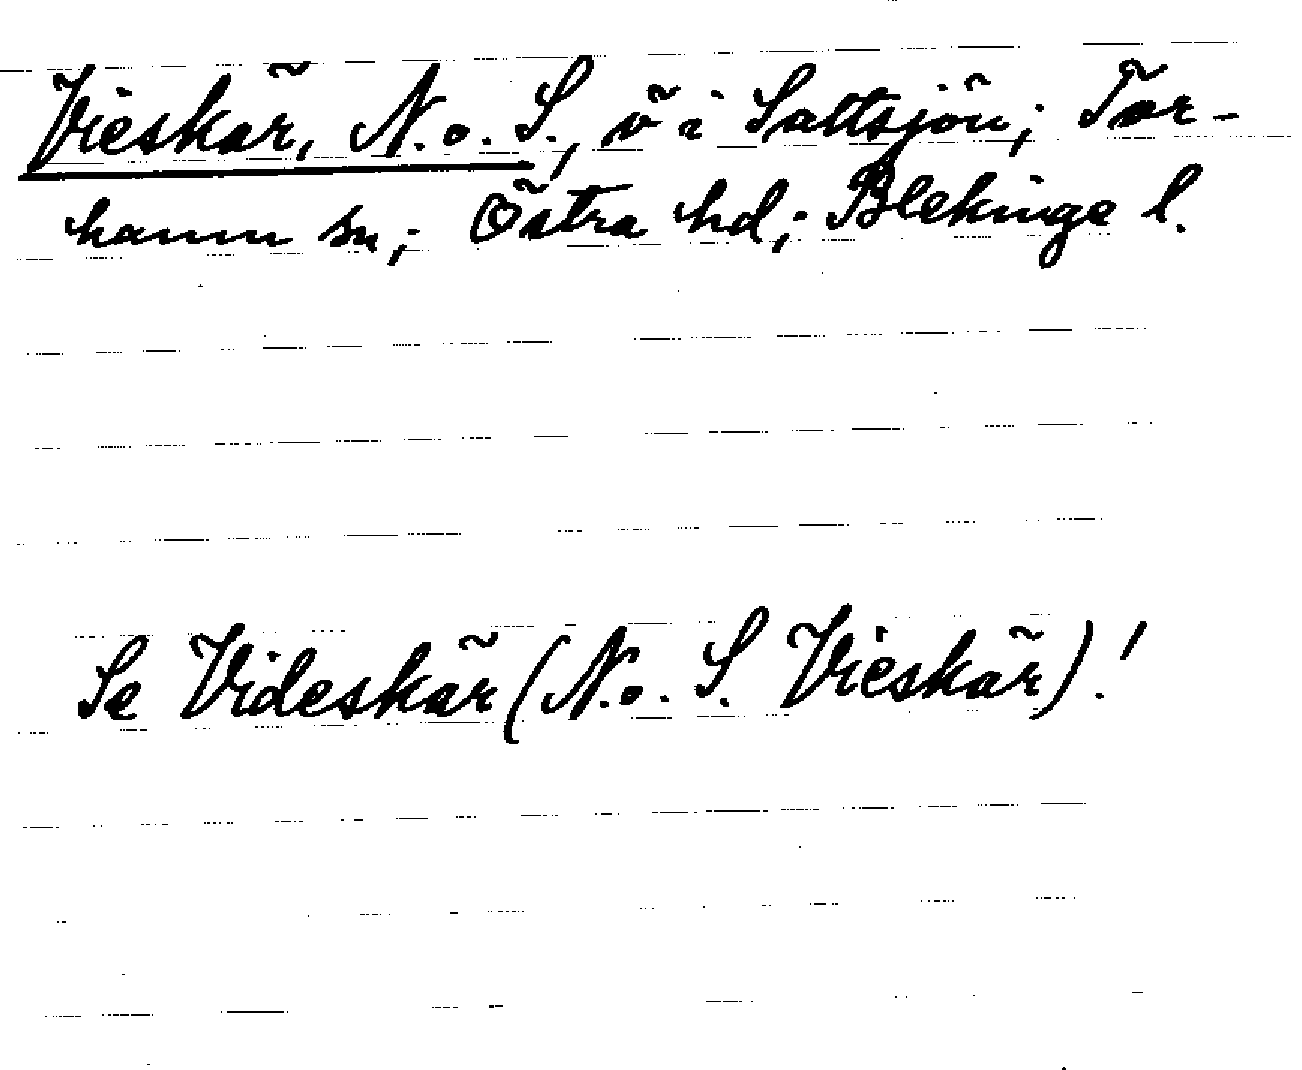 Vieskär, N. o. S., ö i Saltsjön; Tor-
hamn sn; Östra hd; Blekinge l.
Se Videskär (N. o. S. Vieskär)!